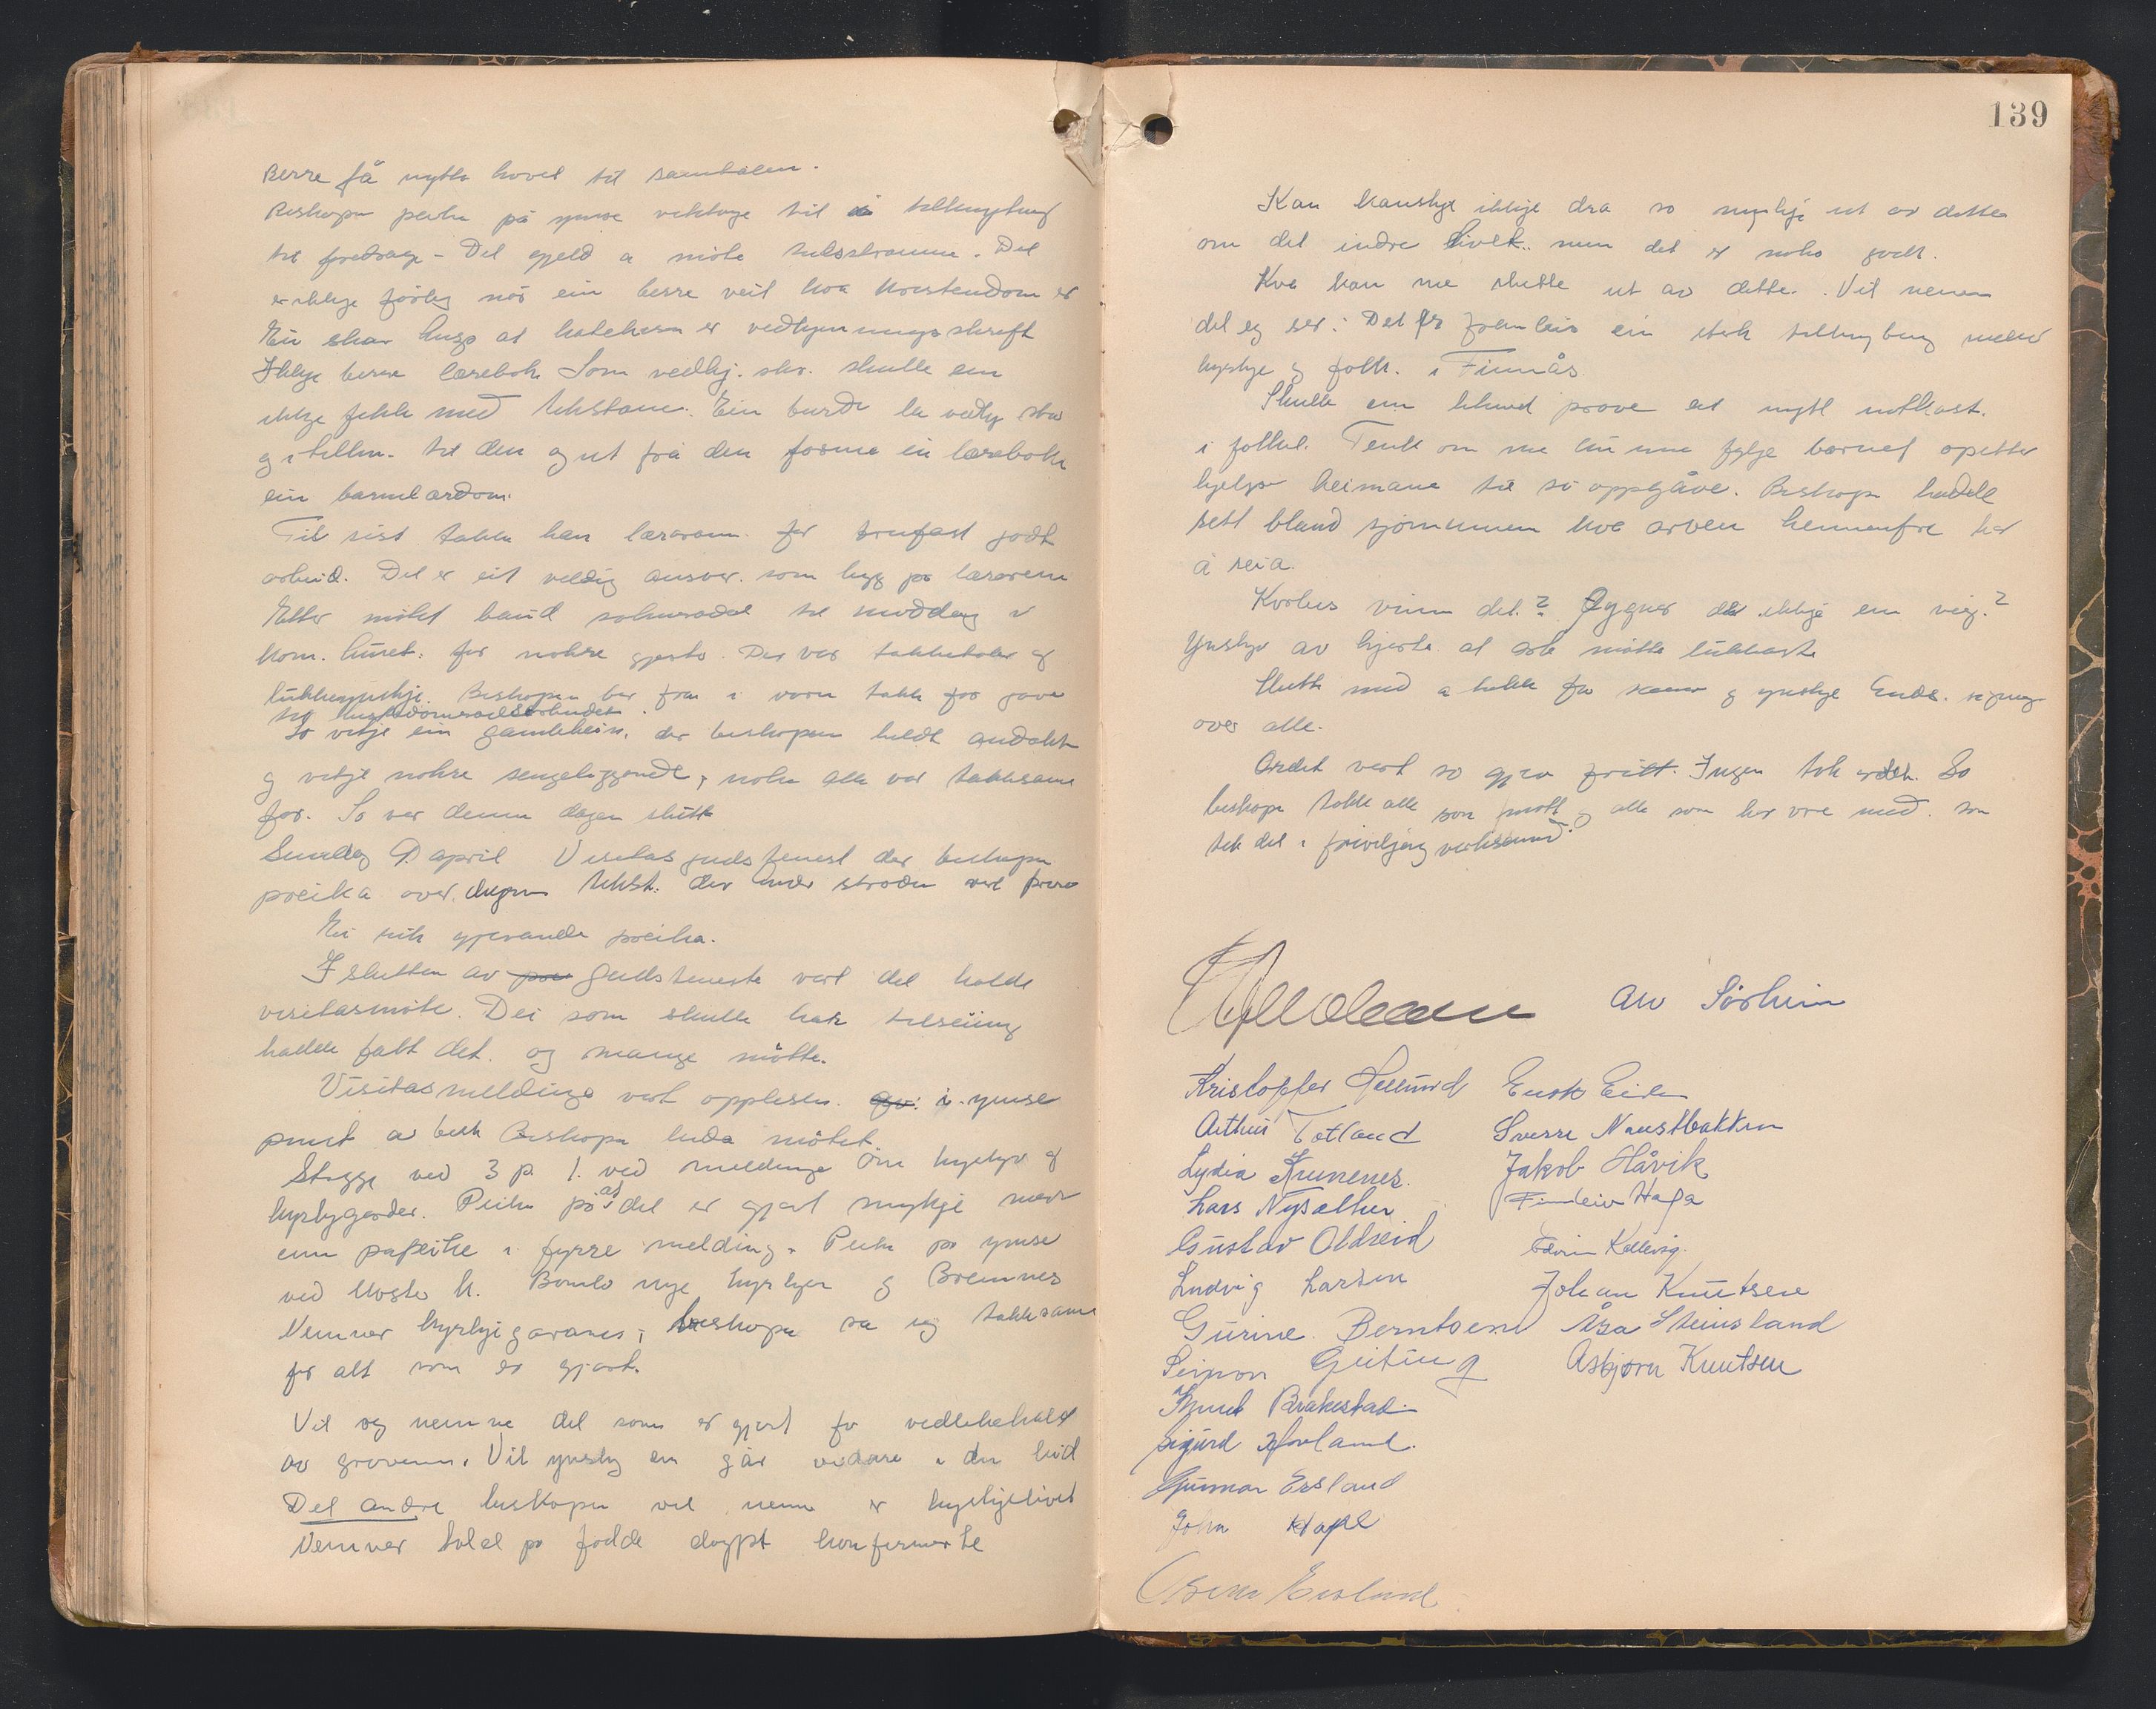 Berre få nytte hovet til samtalen.
Biskopen peika på ymse viktuge til tilknyting
til foredrage - Det gjeld a møte tidsstraumen. Det
er ikkje farleg når ein berre veit kva kristendom er
Ein skar hugs at katekisen er vedkjenningsskrift
Ikkje berre lærebok Som vedkj. skr. skulle ein
ikkje fikle med tekstane. Ein burde la vedkj stå
og i tillen. til den og ut frå den forma ei lærebok
ein barnelærdom.
Til sist takka han lærarane for trufast godt
arbeid. Det er eit veldig ansvar som ligg på lærarene
Etter møtet baud sokneradet til middag i
kom. huset. for nokre gjester. Der var takketalar og
lukkynskje. Biskopen bar fram i varm takk for gave
til ungdomsradsarbeidet.
So vitje ein gamleheim. der biskopen heldt andakt
og vitje nokre sengeliggande, noko alle var takksame
for. So var denne dagen slutt
Sundag 9 april Visitasgudsteneste der biskopen
preika over dagens tekst.
Ei rik gjevande preika.
I slutten av gudsteneste vart det halde
visitasmøte. Dei som skulle hatt tilseiing
hadde fått det. og mange møtte.
Visitasmeldinga vart opplesen. i ymse
punkt av besk Biskopen leida møtet.
Stogga ved 3 p. 1. ved meldinga om kyrkjer og
kyrkjegarder. Peika på at det er gjort mykje meir
enn påpeika i fyrre melding. Peika på ymse
ved Moster k. Bømlo nye kyrkjer og Bremnes
Nemner kyrkjegarane; biskopen sa seg takksame
for alt som er gjort.
Vil og nemne det som er gjort for vedlikehald
av gravene. Vil ynskj ein går vidare i den leid
Det andre biskopen vil nemne er kyrkjelivet
Nemner tal på fødde døypt konfirmerte
139
Kan kanskje ikkje dra so mykje ut av dette
om det indre livet. men det er noko godt.
Kva kan me slutte ut av dette. Vil nemne
det eg ser: Det er framleis ein sterk tilknyting mellom
kyrkje og folk. i Finnås
Skulle ein likevel prøve eit nytt nottkast.
i folket. Tenk om me kunne fylje barnet opetter
hjelpe heimane til si oppgåve. Biskopen hadde
sett bland sjømennen kva arven heimanfrå har
å seia.
Korleis vinn det? Øygner det ikkje ein veg?
Ynskjer av hjarta at det måtte lukkast
Slutta med a takk for og ynskje Guds. signing
over alle.
Ordet vart so gjeve fritt. Ingen tok ordet. So
biskopen takka alle som møtt og alle som har vore med. som
tek del i friviljug verksemd.
Alv Sørheim
Kristoffer Hellund Enok Eide
Arthur Totland Sverre Naustbakken
Lydia Innvær. Jakob Håvik
Lars Nysæther Finnleiv Haga
Gustav Aldseid Edvin Kallevåg.
Ludvig Larsen Johan Knutsen
Gurine Berntsen Åsa Steinsland
Simon Geitung Asbjørn Knutsen
Knut Brakestad
Sigurd Hovland.
Gunnar Ersland
John Hope